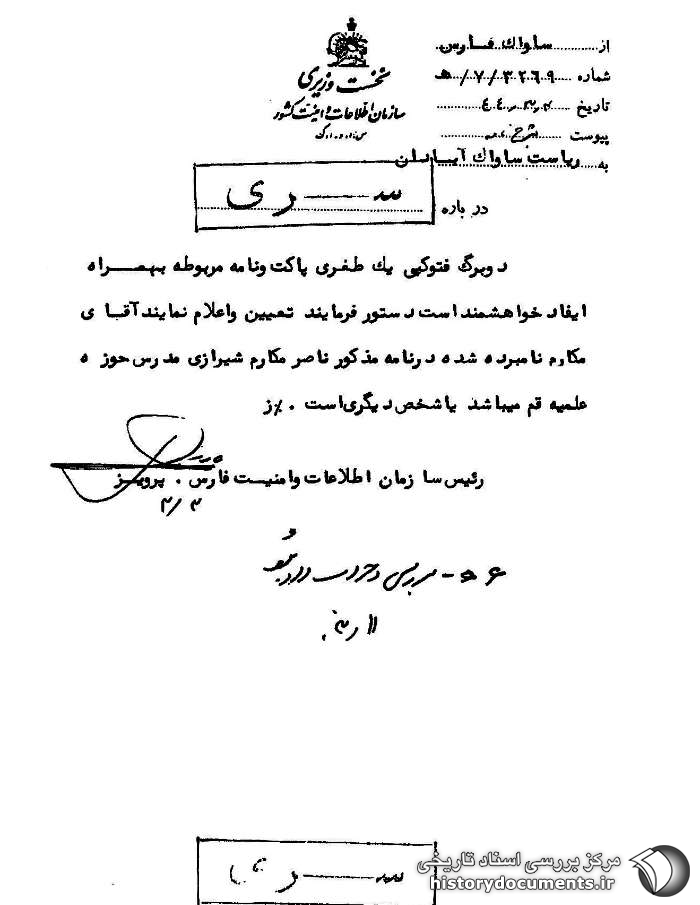 نخست وزیری
سازمان اطلاعات و امنیت کشور
س.ا.و.ا.ک
از ساواك فارس
شماره ۳۲۶۹ /۷/ هـ
تاریخ ۴۴
پیوست شرح
به ریاست ساواك آبادان
سری
در باره
دوبرگ فتوکپی یك طغری پاکت ونامه مربوطه بهمراه
ایفاد خواهشمند است دستور فرمایند تعیین واعلام نمایند آقای
مکارم نامبرده شده درنامه مذکور ناصر مکارم شیرازی مدرس حوزه
علمیه قم میباشد یا شخص دیگری است .
رئیس سازمان اطلاعات وامنیت فارس . پرویز
۳/۳
سری
مرکز بررسی اسناد تاریخی
historydocuments.ir